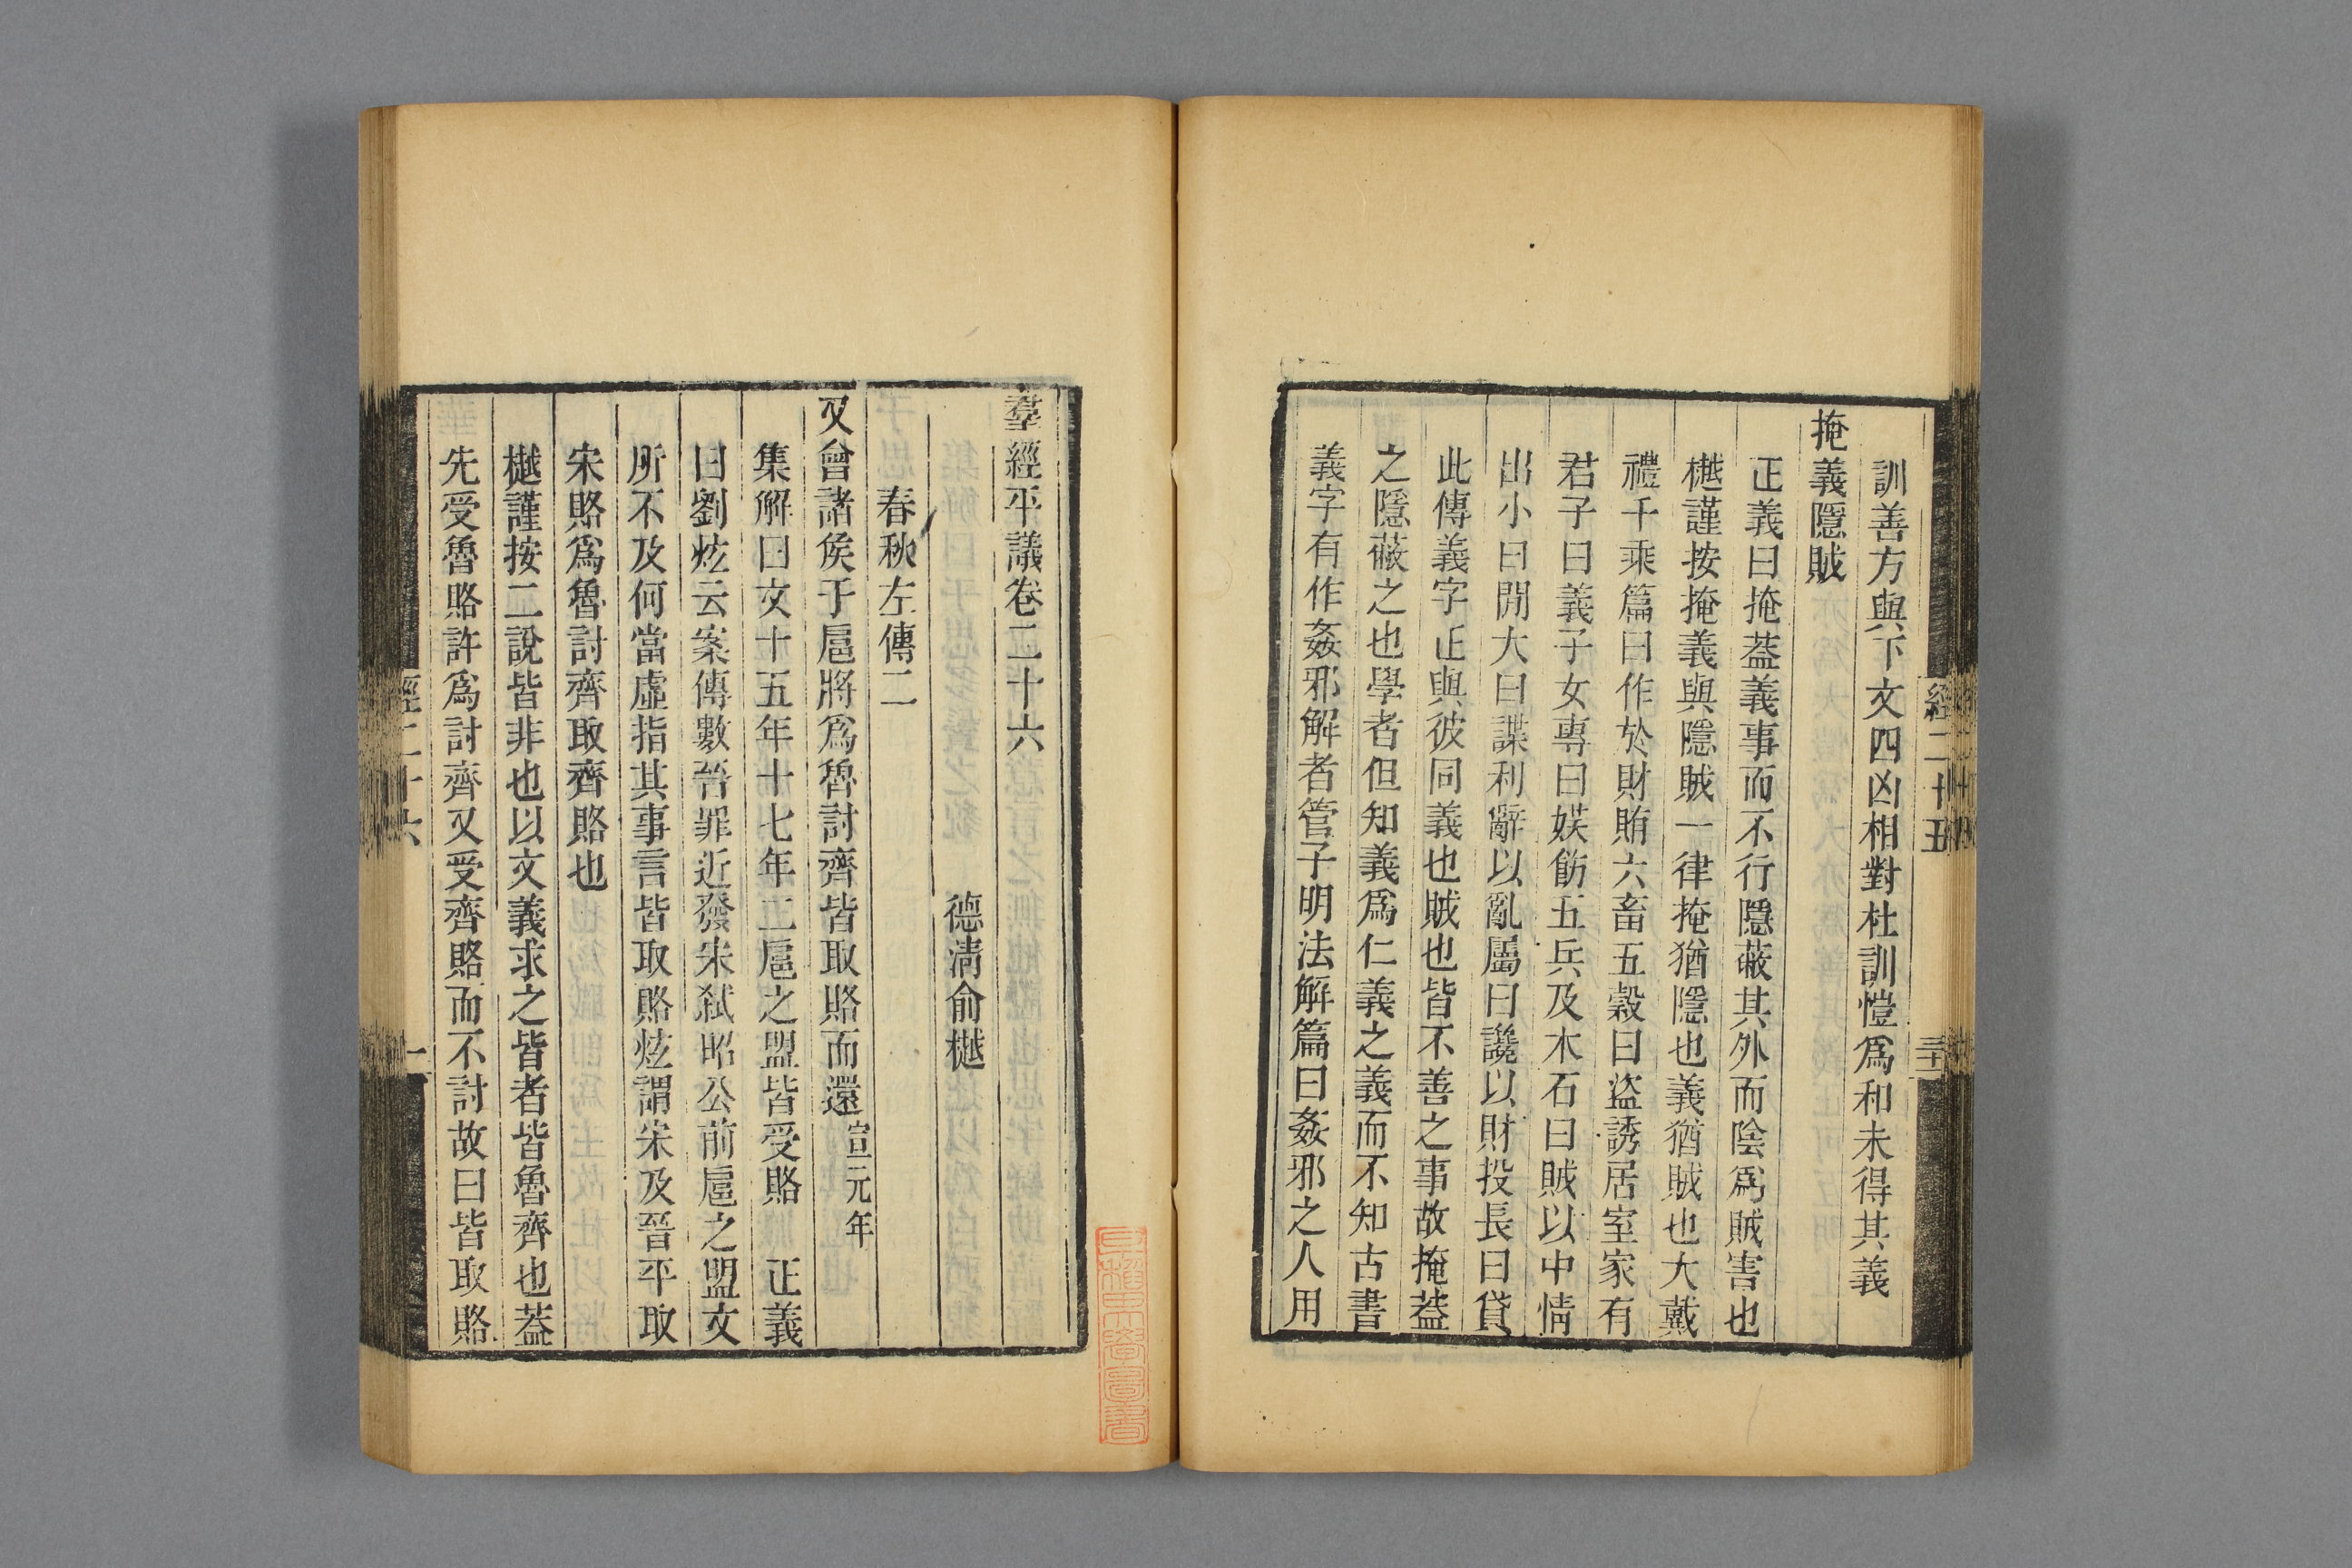 訓善方與下文四凶相對杜訓愷爲和未得其義
掩義隱賊
正義曰掩葢義事而不行隱蔽其外而陰爲賊害也
樾謹按掩義與隱賊一律掩猶隱也義猶賊也大戴
禮千乘篇曰作於財賄六畜五穀曰盜誘居室家有
君子曰義子女專曰娱飭五兵及木石曰賊以中情
出小曰閒大曰諜利辭以亂屬曰讒以財投長曰貸
此傳義字正與彼同義也賊也皆不善之事故掩葢
之隱蔽之也學者但知義爲仁義之義而不知古書
義字有作姦邪解者管子明法解篇曰姦邪之人用
經二十五
羣經平議卷二十六
德清俞樾
春秋左傳二
又會諸侯于扈將爲魯討齊皆取賂而還宣元年
集解曰文十五年十七年二扈之盟皆受賂 正義
曰劉炫云案傳數晉罪近發宋弑昭公前扈之盟文
所不及何當虛指其事言皆取賂炫謂宋及晉平取
宋賂爲魯討齊取齊賂也
樾謹按二說皆非也以文義求之皆者皆魯齊也葢
先受魯賂許爲討齊又受齊賂而不討故曰皆取賂
經二十六
一